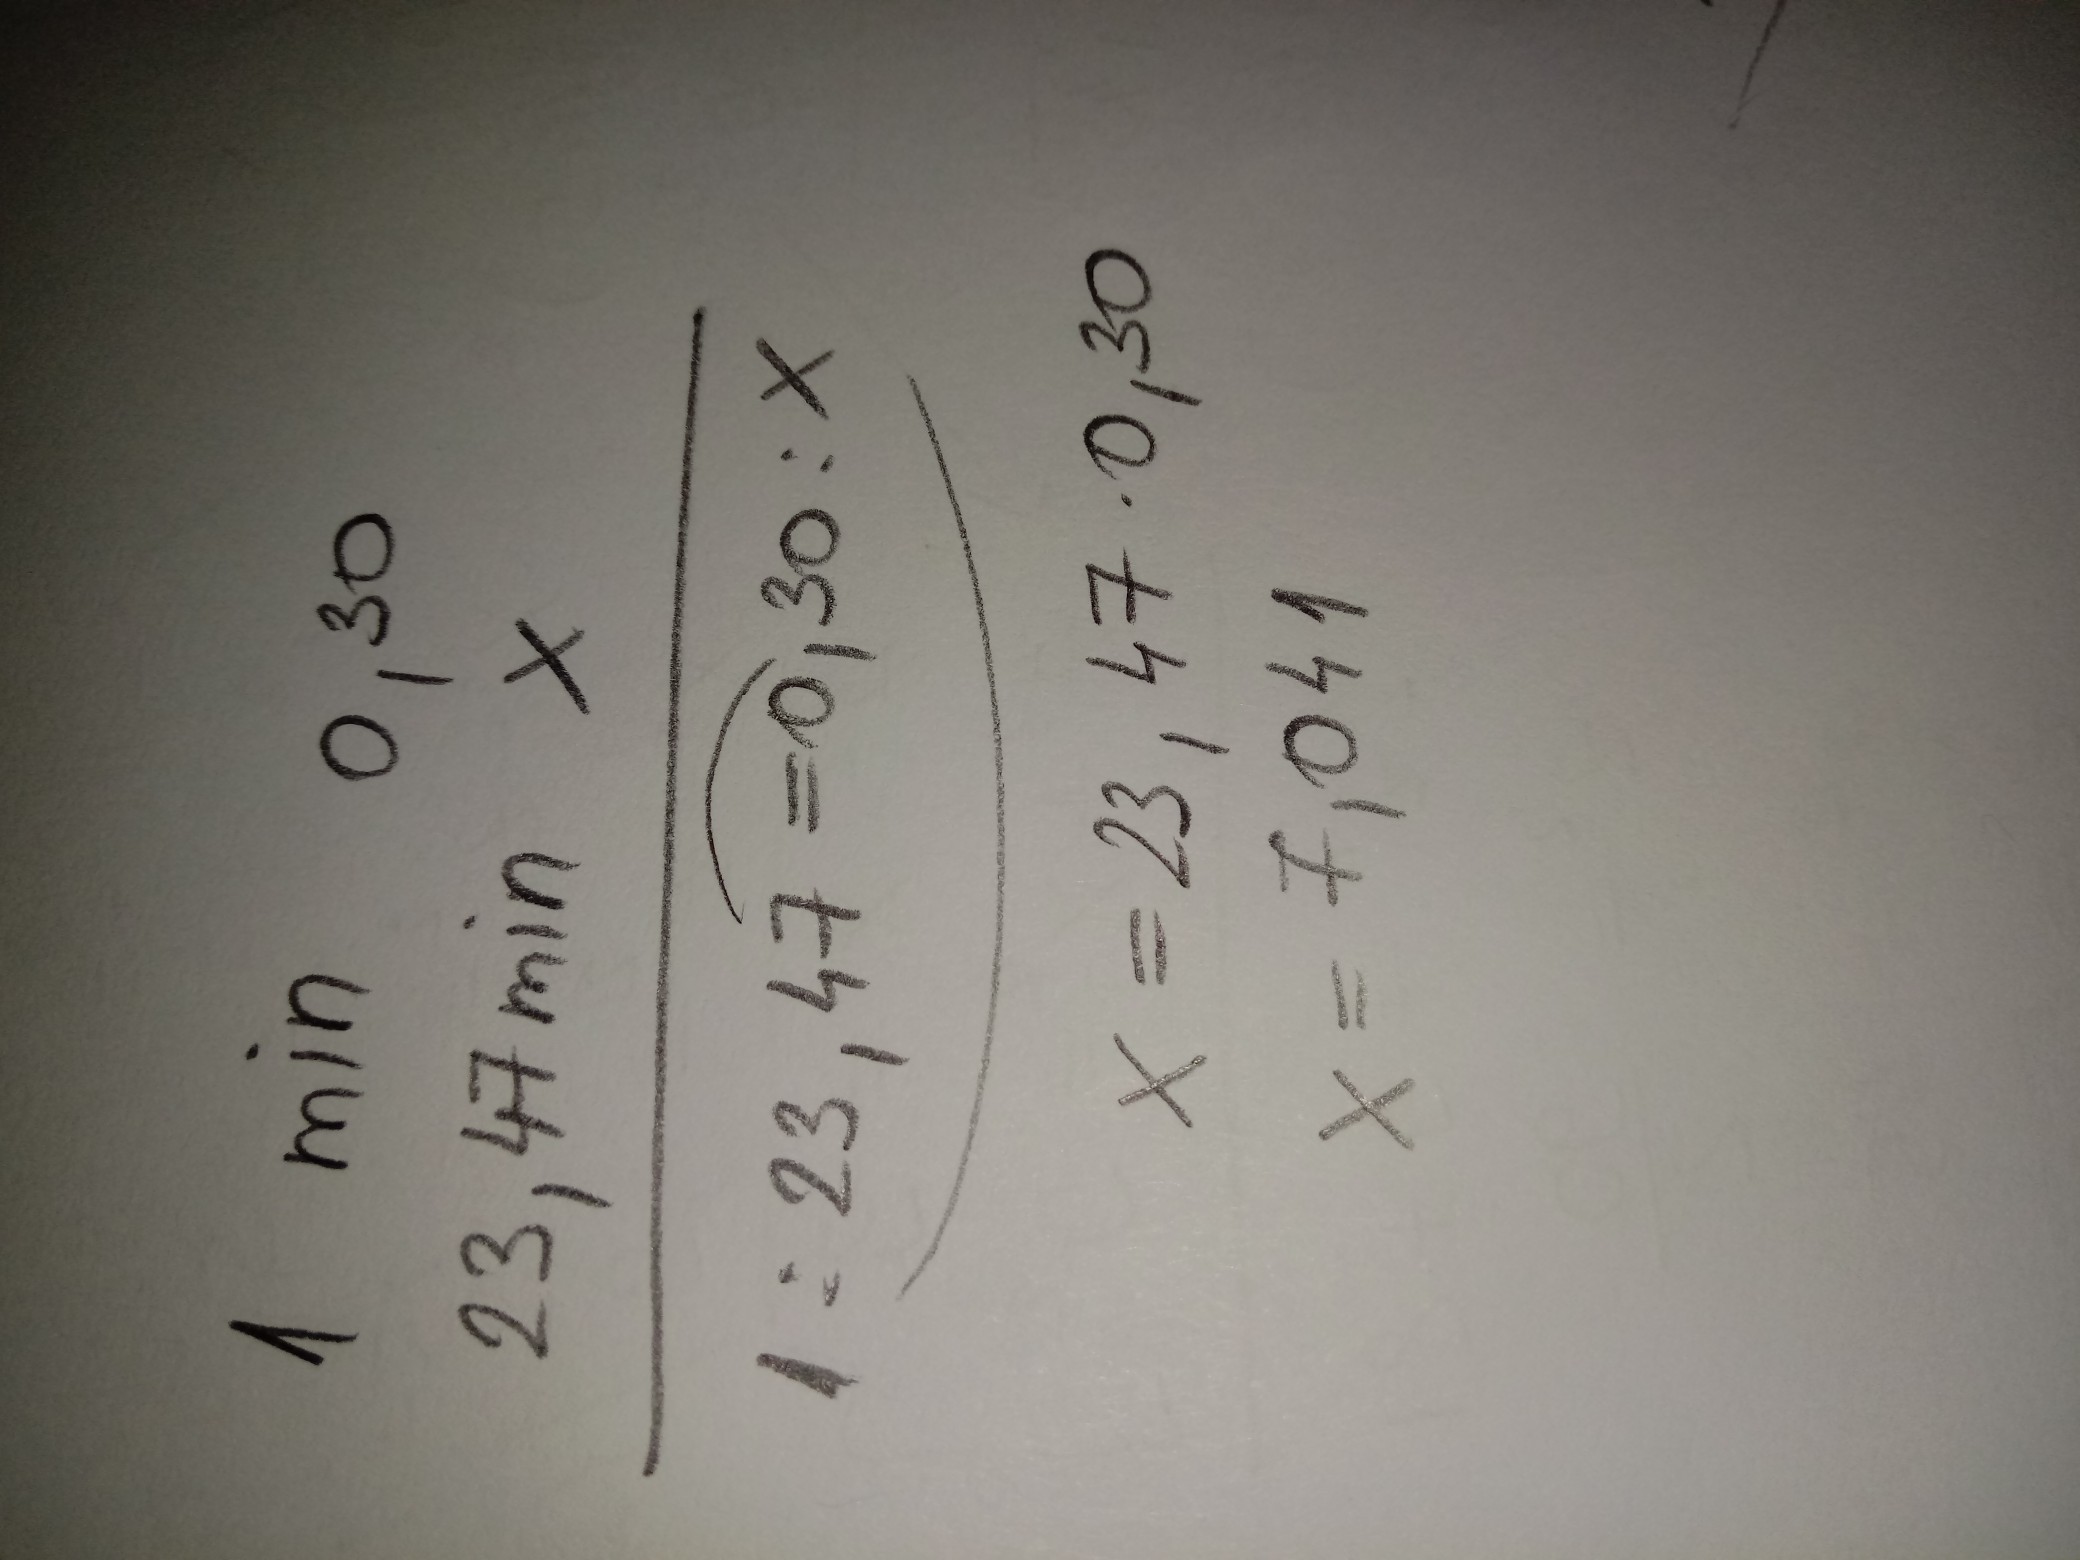 1 min 0,30
23,47 min x
1 : 23,47 = 0,30 : x
x = 23,47 · 0,30
x = 7,041